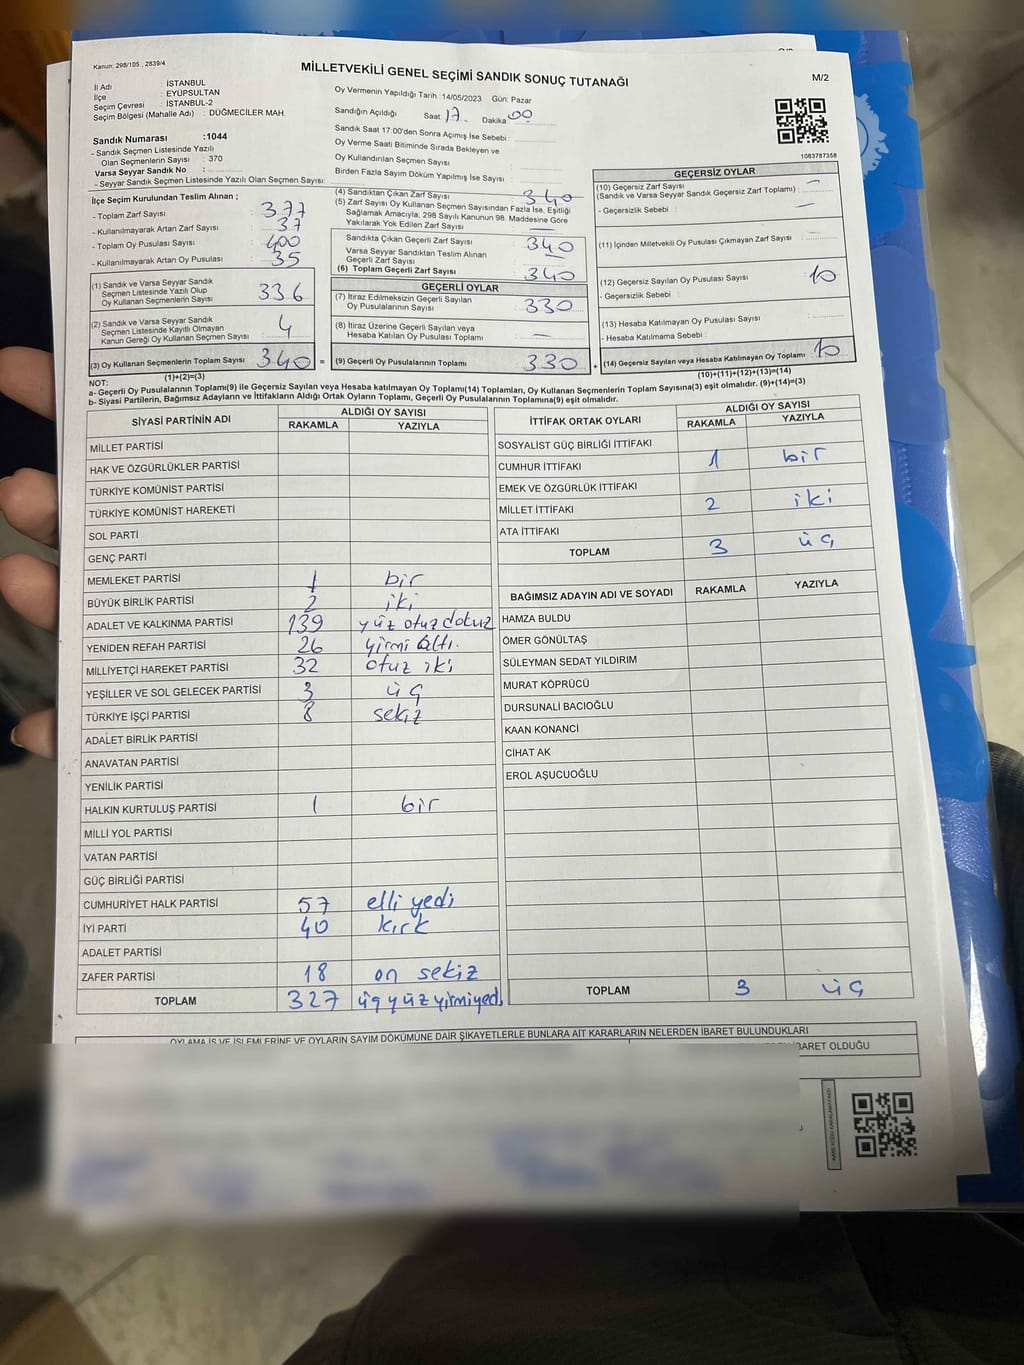 Kanun: 298/105 , 2839/4
MİLLETVEKİLİ GENEL SEÇİMİ SANDIK SONUÇ TUTANAĞI
M/2
İl Adı : İSTANBUL
İlçe : EYÜPSULTAN
Seçim Çevresi : İSTANBUL-2
Seçim Bölgesi (Mahalle Adı) : DÜĞMECİLER MAH.
Sandık Numarası :1044
- Sandık Seçmen Listesinde Yazılı
Olan Seçmenlerin Sayısı : 370
Varsa Seyyar Sandık No :
- Seyyar Sandık Seçmen Listesinde Yazılı Olan Seçmen Sayısı:
Oy Vermenin Yapıldığı Tarih :14/05/2023 Gün: Pazar
Sandığın Açıldığı Saat 17 Dakika 00
Sandık Saat 17:00'den Sonra Açımış İse Sebebi :
Oy Verme Saati Bitiminde Sırada Bekleyen ve
Oy Kullandırılan Seçmen Sayısı :
Birden Fazla Sayım Döküm Yapılmış İse Sayısı :
1083787358
İlçe Seçim Kurulundan Teslim Alınan ;
- Toplam Zarf Sayısı : 377
- Kullanılmayarak Artan Zarf Sayısı : 37
- Toplam Oy Pusulası Sayısı : 400
- Kullanılmayarak Artan Oy Pusulası : 35
(1) Sandık ve Varsa Seyyar Sandık
Seçmen Listesinde Yazılı Olup
Oy Kullanan Seçmenlerin Sayısı : 336
(2) Sandık ve Varsa Seyyar Sandık
Seçmen Listesinde Kayıtlı Olmayan
Kanun Gereği Oy Kullanan Seçmen Sayısı : 4
(3) Oy Kullanan Seçmenlerin Toplam Sayısı : 340 =
(1)+(2)=(3)
(4) Sandıktan Çıkan Zarf Sayısı : 340
(5) Zarf Sayısı Oy Kullanan Seçmen Sayısından Fazla İse, Eşitliği
Sağlamak Amacıyla, 298 Sayılı Kanunun 98. Maddesine Göre
Yakılarak Yok Edilen Zarf Sayısı : —
Sandıkta Çıkan Geçerli Zarf Sayısı : 340
Varsa Seyyar Sandıktan Teslim Alınan
Geçerli Zarf Sayısı : —
(6) Toplam Geçerli Zarf Sayısı : 340
GEÇERLİ OYLAR
(7) İtiraz Edilmeksizin Geçerli Sayılan
Oy Pusulalarının Sayısı : 330
(8) İtiraz Üzerine Geçerli Sayılan veya
Hesaba Katılan Oy Pusulası Toplamı : —
(9) Geçerli Oy Pusulalarının Toplamı : 330 +
GEÇERSİZ OYLAR
(10) Geçersiz Zarf Sayısı
(Sandık ve Varsa Seyyar Sandık Geçersiz Zarf Toplamı) : —
- Geçersizlik Sebebi : —
(11) İçinden Milletvekili Oy Pusulası Çıkmayan Zarf Sayısı :
(12) Geçersiz Sayılan Oy Pusulası Sayısı : 10
- Geçersizlik Sebebi :
(13) Hesaba Katılmayan Oy Pusulası Sayısı :
- Hesaba Katılmama Sebebi :
(14) Geçersiz Sayılan veya Hesaba Katılmayan Oy Toplamı : 10
(10)+(11)+(12)+(13)=(14)
NOT:
a- Geçerli Oy Pusulalarının Toplamı(9) ile Geçersiz Sayılan veya Hesaba katılmayan Oy Toplamı(14) Toplamları, Oy Kullanan Seçmenlerin Toplam Sayısına(3) eşit olmalıdır. (9)+(14)=(3)
b- Siyasi Partilerin, Bağımsız Adayların ve İttifakların Aldığı Ortak Oyların Toplamı, Geçerli Oy Pusulalarının Toplamına(9) eşit olmalıdır.
SİYASİ PARTİNİN ADI ALDIĞI OY SAYISI
RAKAMLA YAZIYLA
MİLLET PARTİSİ
HAK VE ÖZGÜRLÜKLER PARTİSİ
TÜRKİYE KOMÜNİST PARTİSİ
TÜRKİYE KOMÜNİST HAREKETİ
SOL PARTİ
GENÇ PARTİ
MEMLEKET PARTİSİ 1 bir
BÜYÜK BİRLİK PARTİSİ 2 iki
ADALET VE KALKINMA PARTİSİ 139 yüz otuz dokuz
YENİDEN REFAH PARTİSİ 26 yirmi altı.
MİLLİYETÇİ HAREKET PARTİSİ 32 otuz iki
YEŞİLLER VE SOL GELECEK PARTİSİ 3 üç
TÜRKİYE İŞÇİ PARTİSİ 8 sekiz
ADALET BİRLİK PARTİSİ
ANAVATAN PARTİSİ
YENİLİK PARTİSİ
HALKIN KURTULUŞ PARTİSİ 1 bir
MİLLİ YOL PARTİSİ
VATAN PARTİSİ
GÜÇ BİRLİĞİ PARTİSİ
CUMHURİYET HALK PARTİSİ 57 elli yedi
İYİ PARTİ 40 kırk
ADALET PARTİSİ
ZAFER PARTİSİ 18 on sekiz
TOPLAM 327 üç yüz yirmi yedi
İTTİFAK ORTAK OYLARI ALDIĞI OY SAYISI
RAKAMLA YAZIYLA
SOSYALİST GÜÇ BİRLİĞİ İTTİFAKI
CUMHUR İTTİFAKI 1 bir
EMEK VE ÖZGÜRLÜK İTTİFAKI
MİLLET İTTİFAKI 2 iki
ATA İTTİFAKI
TOPLAM 3 üç
BAĞIMSIZ ADAYIN ADI VE SOYADI RAKAMLA YAZIYLA
HAMZA BULDU
ÖMER GÖNÜLTAŞ
SÜLEYMAN SEDAT YILDIRIM
MURAT KÖPRÜCÜ
DURSUNALİ BACIOĞLU
KAAN KONANCİ
CİHAT AK
EROL AŞUCUOĞLU
TOPLAM 3 üç
OYLAMA İŞ VE İŞLEMLERİNE VE OYLARIN SAYIM DÖKÜMÜNE DAİR ŞİKAYETLERLE BUNLARA AİT KARARLARIN NELERDEN İBARET BULUNDUKLARI
İBARET OLDUĞU